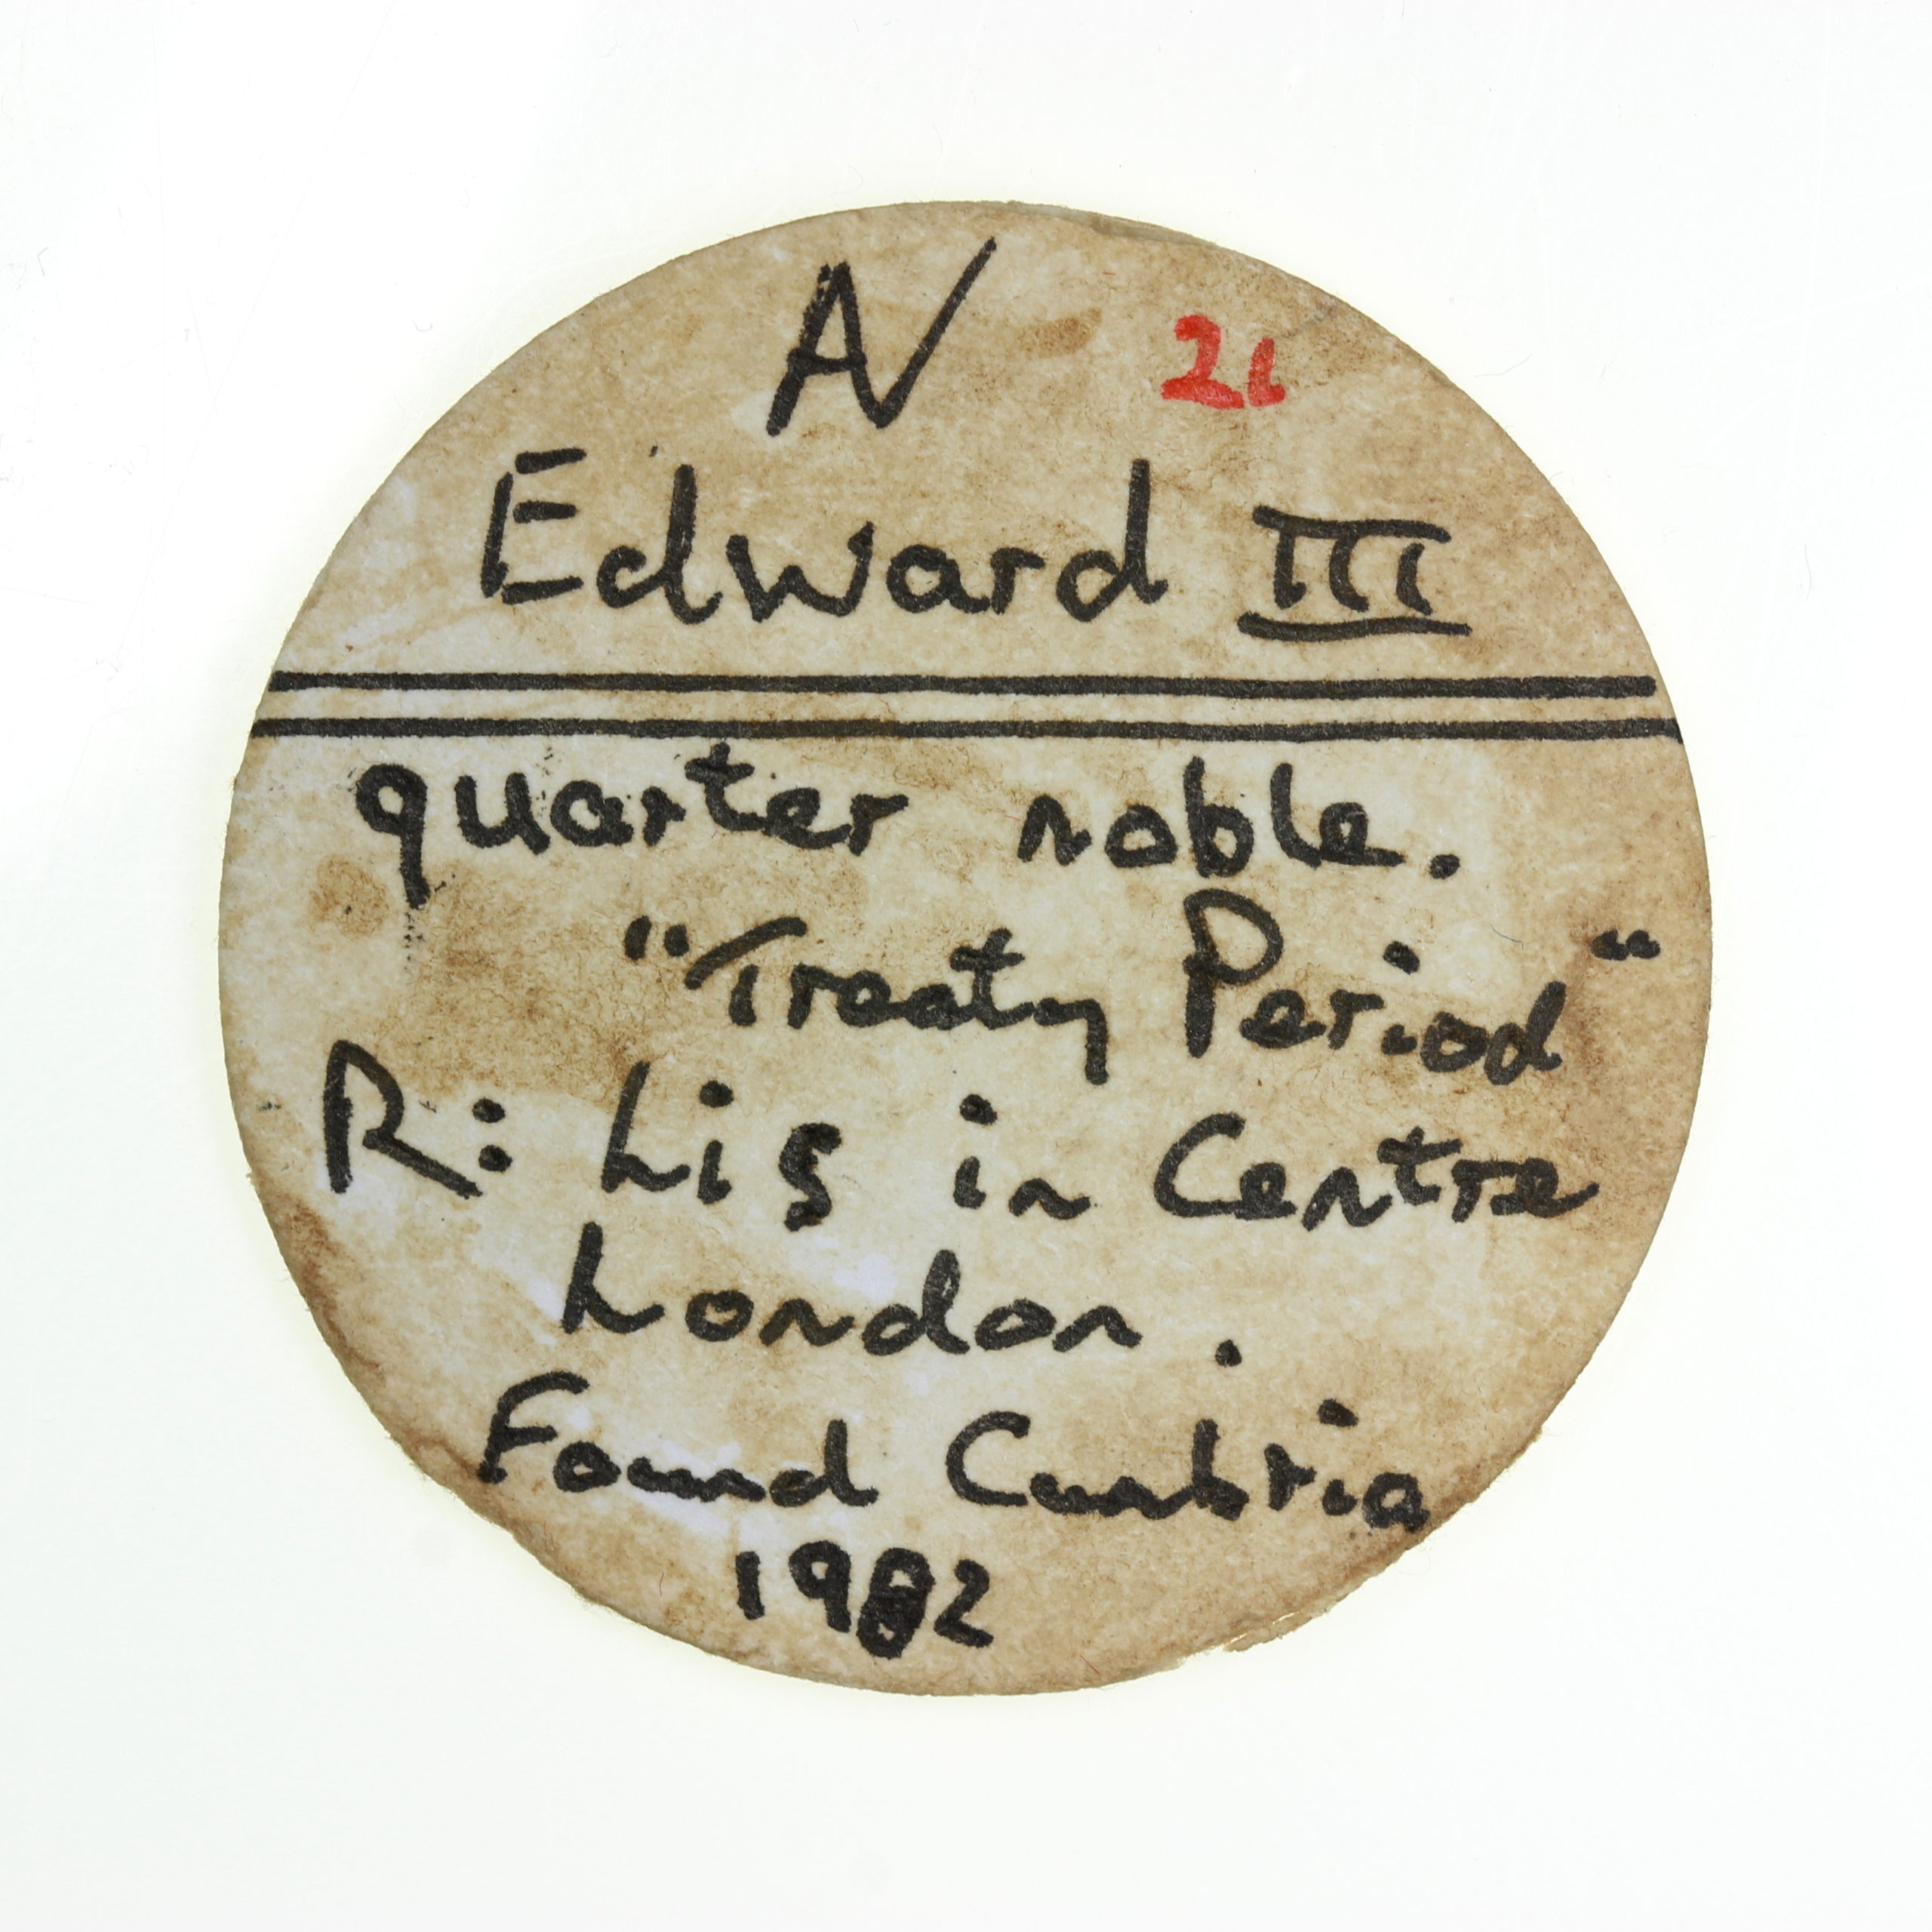 AV 21
Edward III
quarter noble.
"Treaty Period"
R: Lis in Centre
London.
Found Cumbria
1982